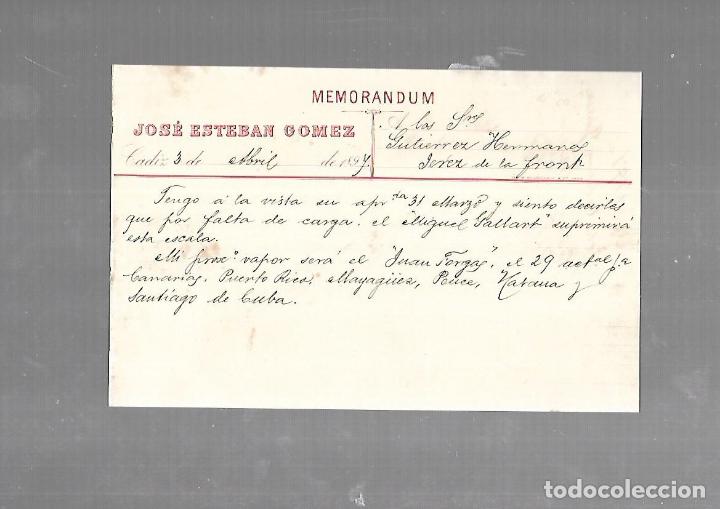 MEMORANDUM
JOSÉ ESTEBAN GOMEZ
Cadiz 3 de Abril de 1897.
A los Sres
Gutierrez Hermanos
Jerez de la front
Tengo á la vista su aprda 31 Marzo y siento decirles
que por falta de carga, el "Miguel Gallart" suprimirá
esta escala.
Mi proxo vapor será el "Juan Forgas", el 29 actual pa
Canarias, Puerto Rico, Mayagüez, Ponce, Habana y
Santiago de Cuba.
todocoleccion.net